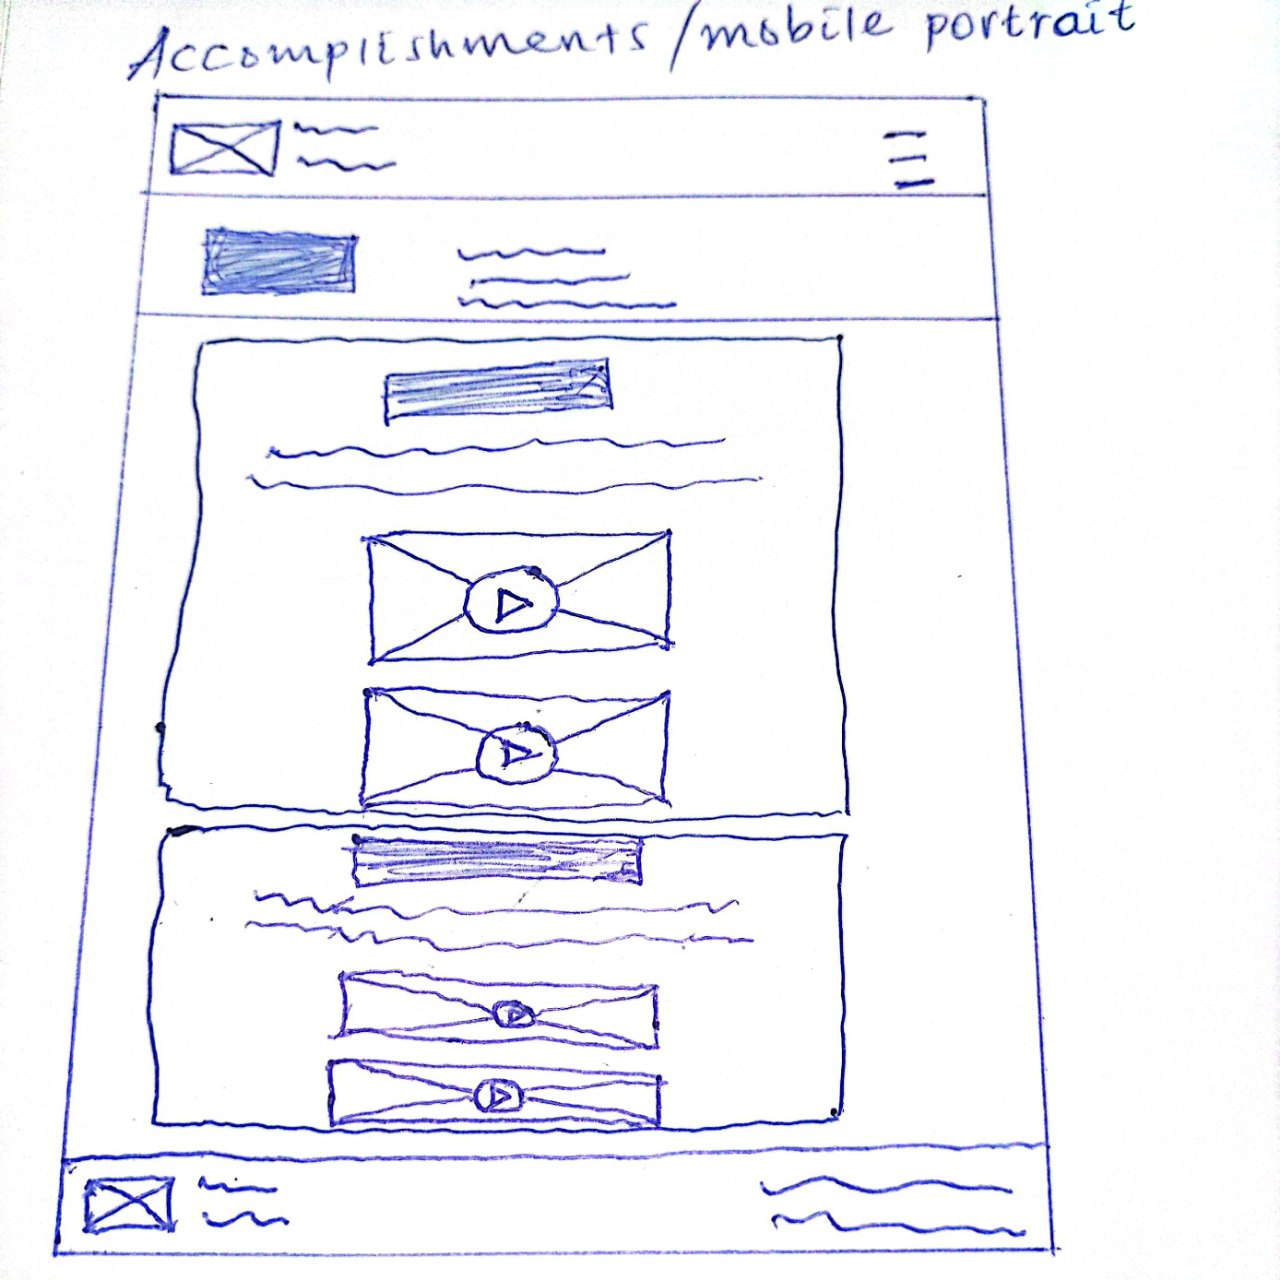 Accomplishments/mobile portrait